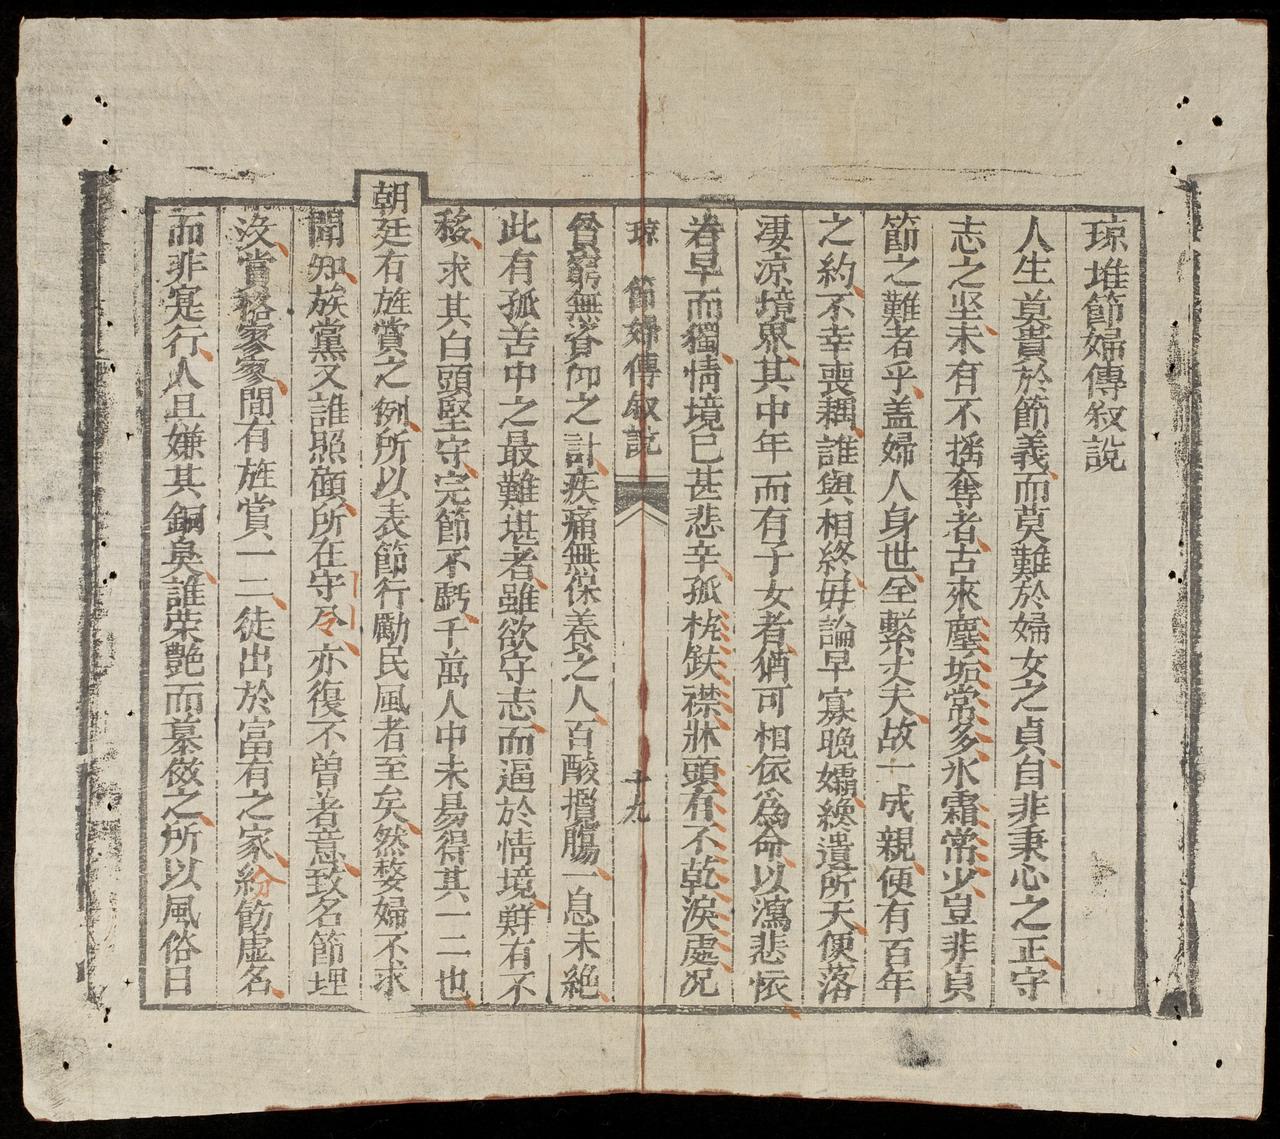 琼堆節婦傳叙説
人生莫貴於節義而莫難於婦女之貞自非秉心之正守
志之坚未有不搖奪者古來塵垢常多氷霜常少豈非貞
節之難者乎盖婦人身世全繫丈夫故一成親便有百年
之約不幸喪耦誰與相終毋論早寡晚孀纔遺所天便落
凄凉境界其中年而有子女者猶可相依爲命以瀉悲懷
若早而獨情境已甚悲辛孤枕鈌襟牀頭有不乾淚處况
琼 節婦傳叙説 十九
貧窮無資仰之計疾痛無保養之人百酸攪膓一息未絶
此有孤苦中之最難堪者雖欲守志而逼於情境鮮有不
移求其白頭堅守完節不虧千萬人中未易得其一二也
朝廷有旌賞之例所以表節行勵民風者至矣然嫠婦不求
聞知族黨又誰照顧所在守令亦復不曽着意致名節埋
没賞格寥寥間有旌賞一二徒出於富有之家紛飾虚名
而非寔行人且嫌其銅臭誰荣艶而慕傚之所以風俗日